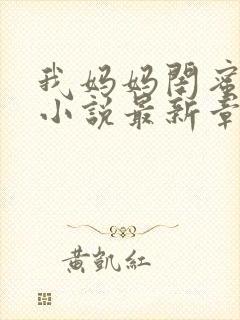 我妈妈閤蜜
小說最新章
黃凱紅